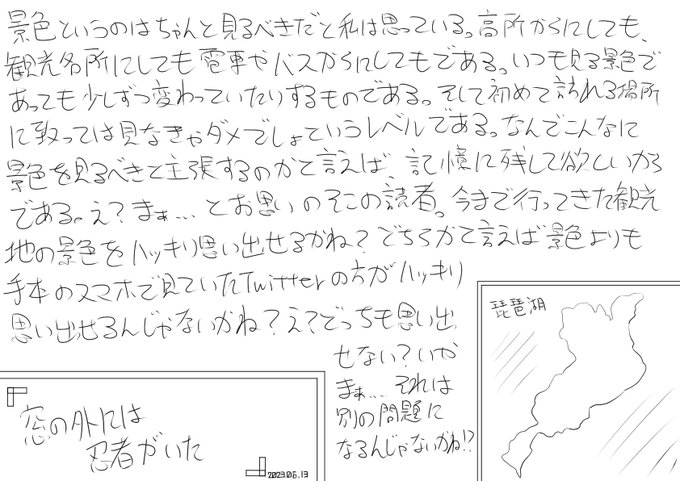 景色というのはちゃんと見るべきだと私は思っている。高所からにしても、
観光名所にしても電車やバスからにしてもである。いつも見る景色で
あっても少しずつ変わっていたりするものである。そして初めて訪れる場所
に致っては見なきゃダメでしょていうレベルである。なんでこんなに
景色を見るべきと主張するのかと言えば、記憶に残して欲しいから
である。え？まぁ…とお思いのそこの読者。今まで行ってきた観光
地の景色をハッキリ思い出せるかね？どちらかと言えば景色よりも
手本のスマホで見ていたTwitterの方がハッキリ
思い出せるんじゃないかね？え？どっちも思い出
せない？いや
まぁ…それは
別の問題に
なるんじゃないかね!?
窓の外には
忍者がいた
2023.06.13
琵琶湖